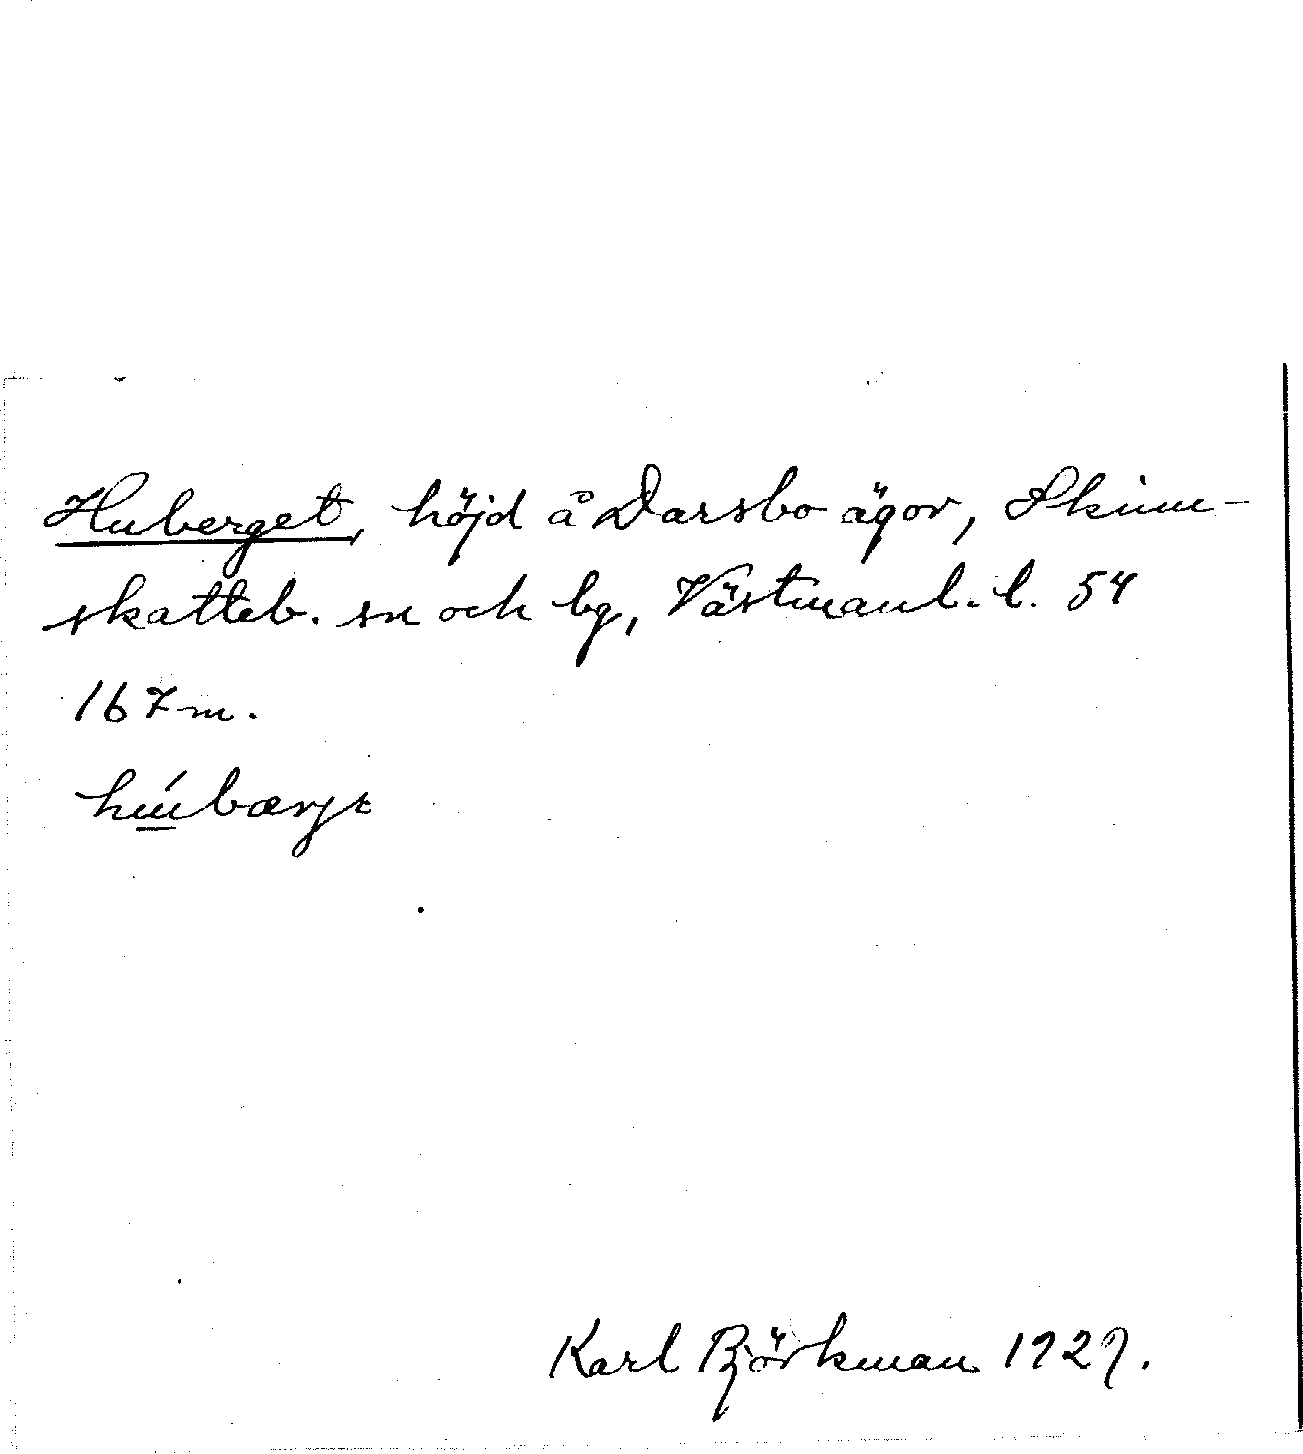 Huberget, höjd å Darsbo ägor, Skinn-
skatteb. sn och bg, Västmanl. l. 54
167 m.
hú̲bærjt
Karl Björkman 1929.